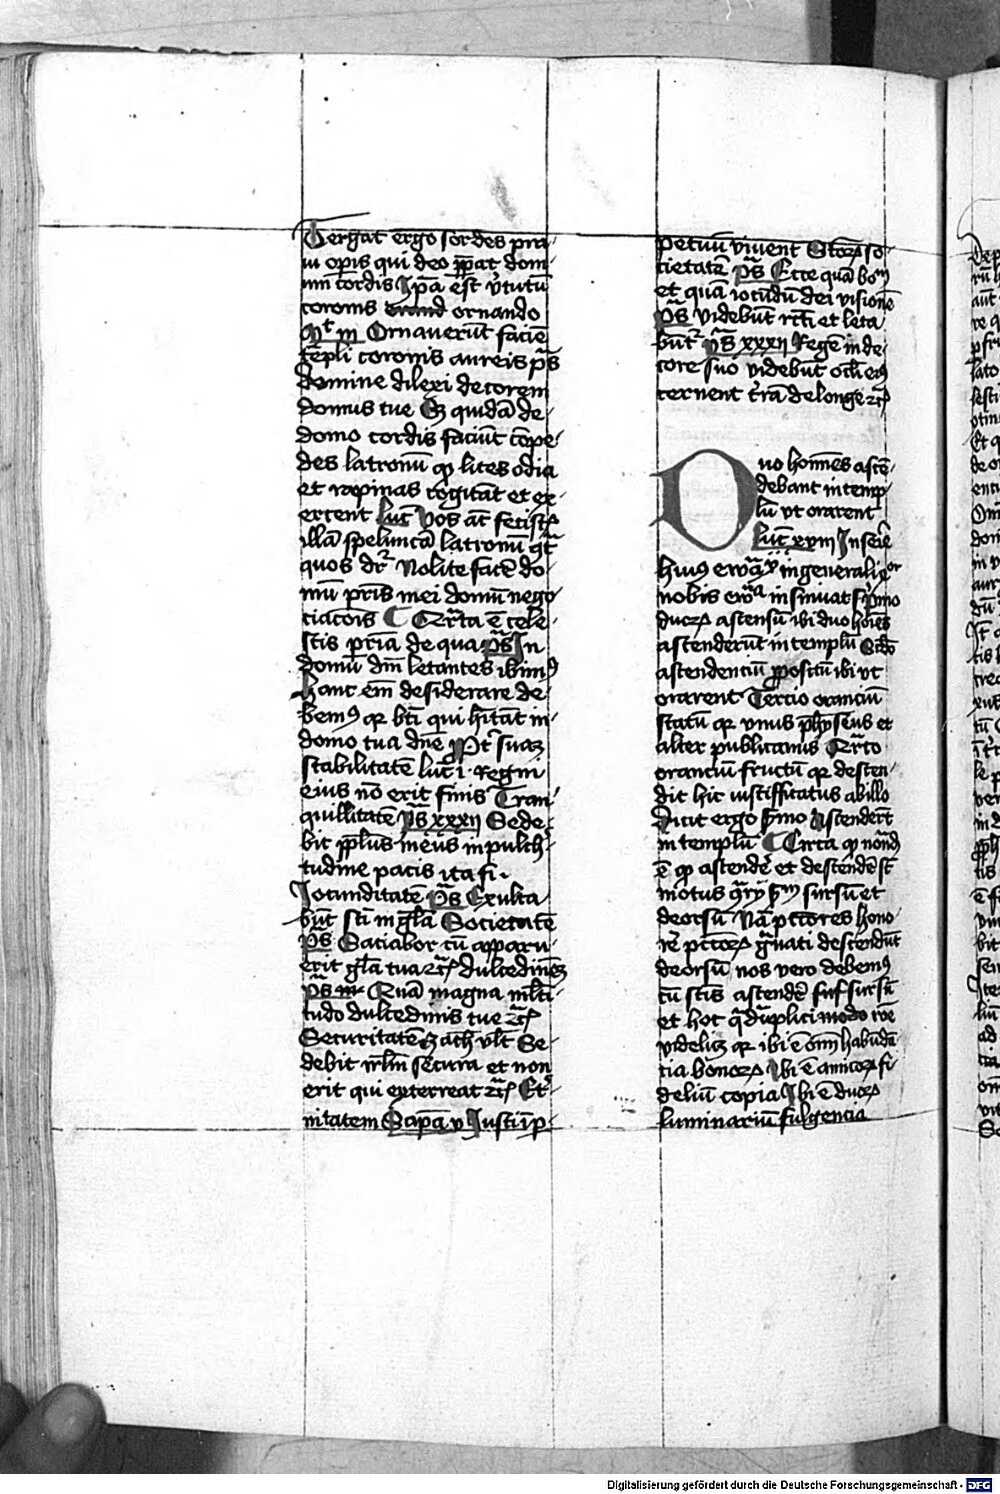 Tergat ergo sordes pra-
ui operis qui deo p̄pat dom-
um cordis Ip̄a est v̓tutū
coronis ornando
Mᵗ iii Ornauerūt faciē
tēpli coronis aureis p̄s
domine dilexi decorem
domus tue Sꝫ quidā de
domo cordis faciūt cōpe-
des latronū ꝙ lites odia
et rapinas cogitāt et ex-
ercent luc̄ Vos aūt fecist̓
illā speluncā latronū
quos dr̄ Nolite facē do-
mū pr̄is mei domū nego-
ciac̄ois ⸿ Q̈rta ē cele-
stis pr̄ia de qua p̄s In
domū dn̄i letantes ibimꝰ
hanc em̄ desiderare de-
bemꝰ qꝛ bt̄i qui hīt̄āt in
domo tua dn̄e Pt̓ suaꝫ
stabilitatē luc̄ i Regni
eius nō erit finis Tran-
quillitatē p̄s xxxii Sede-
bit pp̄lus meus in pulch̓-
tudine pacis ita fi
Iocunditatē p̄s Exulta
būt sc̄i in gl̄a Societatē
p̄s Satiabor cū apparu-
erit gl̄a tua ⁊c̄ dulcedinē
p̄s Quā magna ml̄ti-
tudo dulcedinis tue ⁊c̄
Securitatē zach̓ vl̄t Se-
debit irl̄m secura et non
erit qui exterreat ⁊c̄ Et̓-
nitatem Sap̄a v Iusti īp̄-
petuū viuent Sc̄oꝝ so-
cietatē p̄s Ecce quā bonū
et quā iocūdū dei visionē
p̄s videbūt rc̄ti et leta-
būtʳ ys xxxii Regē in de-
core suo videbūt oc̄li eiꝰ
cernent t̓rā de longe ⁊c̄
Duo hom̄es ascē-
debant in temp-
lū vt orarent
luc̄ xviii In serie
huiꝰ ew̄āij in generali
nobis ew̄a insinuat p̓mo
duoꝝ ascensū ibi duo hōīes
ascenderūt in templū Scd̄o
ascendenciū p̄positū ibi vt
orarent Tercio oranciū
statū qꝛ vnus ph̄yseus et
alter publicanus Q̈rto
oranciū fructū qꝛ descen-
dit hic iustifficatus ab illo
Dicit ergo p̓mo Ascenderūt
in templū ⸿ Circa ꝙ notād
ē ꝙ ascendē et descendē sūt
motus q̈rij p̓m sursū et
deorsū Nā pc̄cores hono-
rē pc̄coꝝ g̈uati descendūt
deorsū nos vero debemꝰ
cū sc̄is ascendē suꝑ sursū
et hoc q̈druplici modo rōe
videlicꝫ qꝛ ibi ē om̄ habūdā-
cia bonoꝝ Ibi ē amicoꝝ fi-
deliū copia Ibi ē duoꝝ
luminariū fulgencia
Digitalisierung gefördert durch die Deutsche Forschungsgemeinschaft - DFG